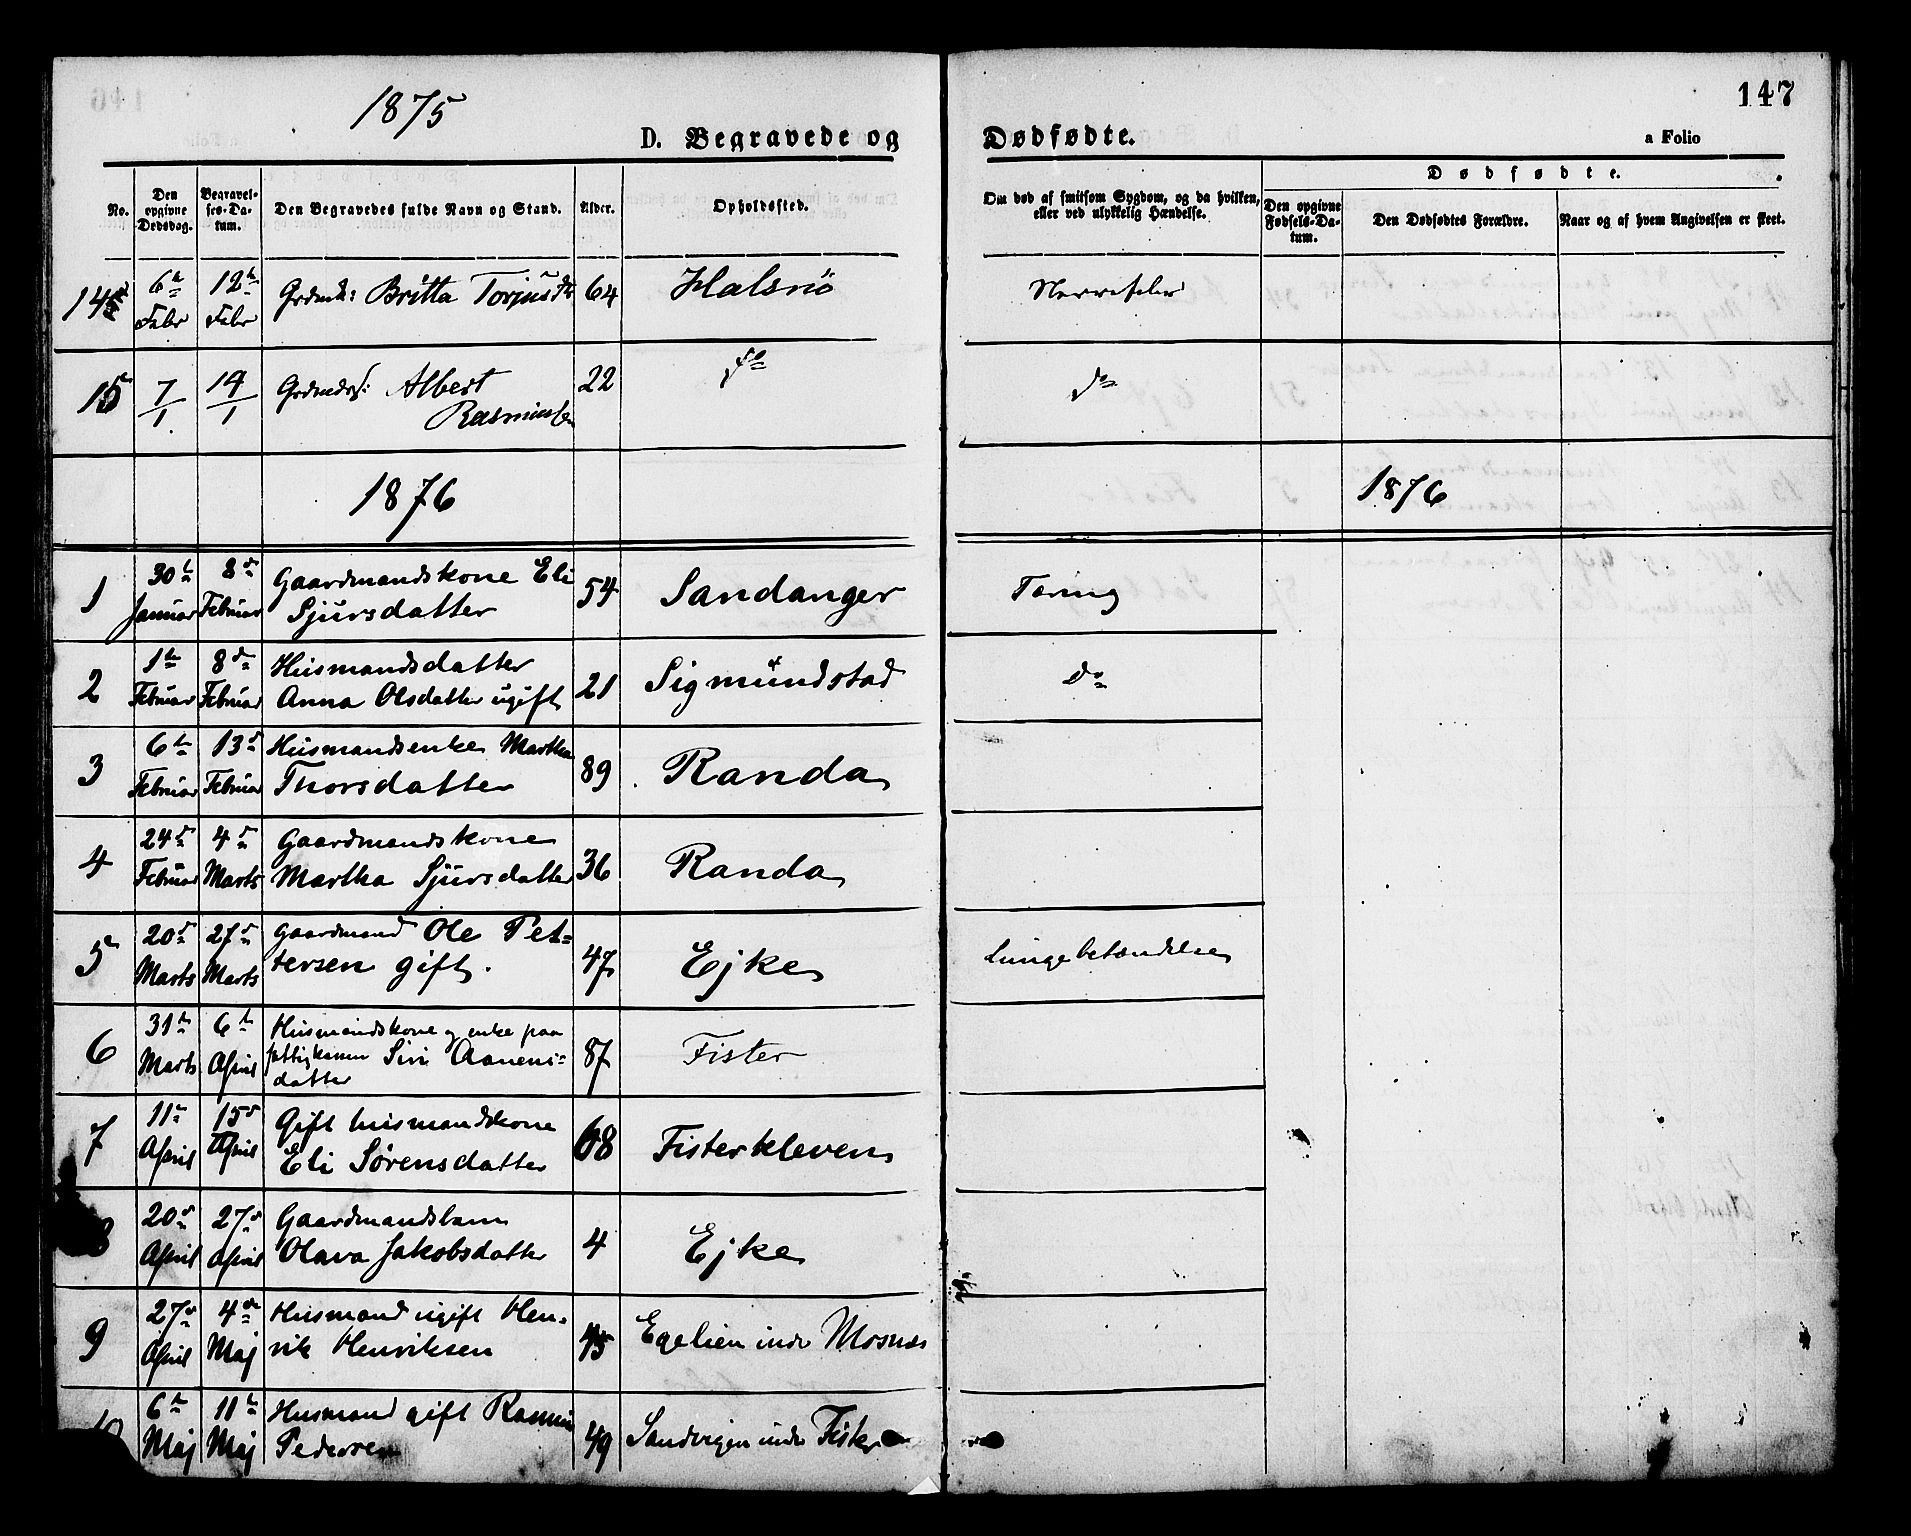 1875
147
D. Begravede og Dødfødte.
a Folio
No.
Den opgivne Dødsdag.
Begravelses-Datum.
Den Begravedes fulde Navn og Stand.
Alder.
Opholdssted.
Om død af smitsom Sygdom, og da hvilken,
eller ved ulykkelig Hændelse.
Dødfødte.
Den opgivne Fødsels-Datum.
Den Dødfødtes Forældre.
Naar og af hvem Angivelsen er skeet.
6te Febr 12te Febr Britta Torjusdtr 64 Halsnö
15 7/1 14/1 Albert 22 do do
Rasmussen
1876 1876
1 30te Januar 8de Februar Gaardmandskone Eli 54 Sandanger Tæring
Sjursdatter
2 1te Februar 8de Februar Husmandsdatter 21 Sigmundstad Do
Anna Olsdatter ugift
3 6te Februar 13de Februar Husmandsenke Martha 89 Randa
Thorsdatter
4 24de Februar 4de Marts Gaardmandskone 36 Randa
Martha Sjursdatter
5 20de Marts 27de Marts Gaardmand Ole Pet= 47 Ejke Lungebetændelse
tersen gift.
6 31te Marts 6te April Husmandskone og enke paa 87 Fister
fattigkassen Siri Aanens=
datter
7 11te April 15de April Gift husmandskone 68 Fisterkleven
Eli Sørensdatter
8 20de April 27de April Gaardmandsbarn 4 Ejke
Olava Jakobsdatter
9 27de April 4de Maj Husmand ugift Hen= 45 Egelien under Mosnæs
rik Henriksen
10 6te Maj 11te Maj Husmand gift Rasmus 49 Sandvigen under Fister
Pedersen